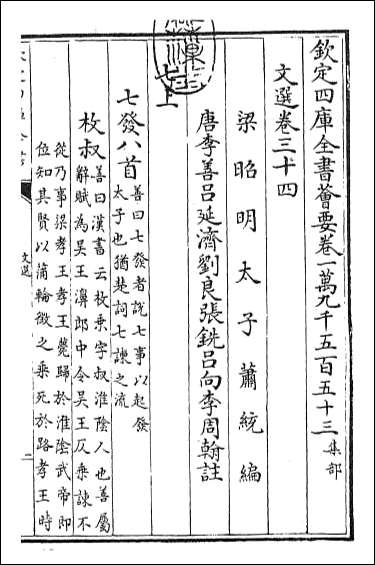 欽定四庫全書薈要卷一萬九千五百五十三 集部
文選卷三十四
梁昭明太子蕭統編
唐李善呂延濟劉良張銑呂向李周翰註
七上
七發八首 善曰七發者說七事以起發
太子也猶楚詞七諫之流
枚叔 善曰漢書云枚乘字叔淮陰人也善屬
辭賦為吳王濞郎中令吳王反乘諫不
從乃事梁孝王孝王薨歸於淮陰武帝即
位知其賢以蒲輪徵之乘死於路孝王時
文選